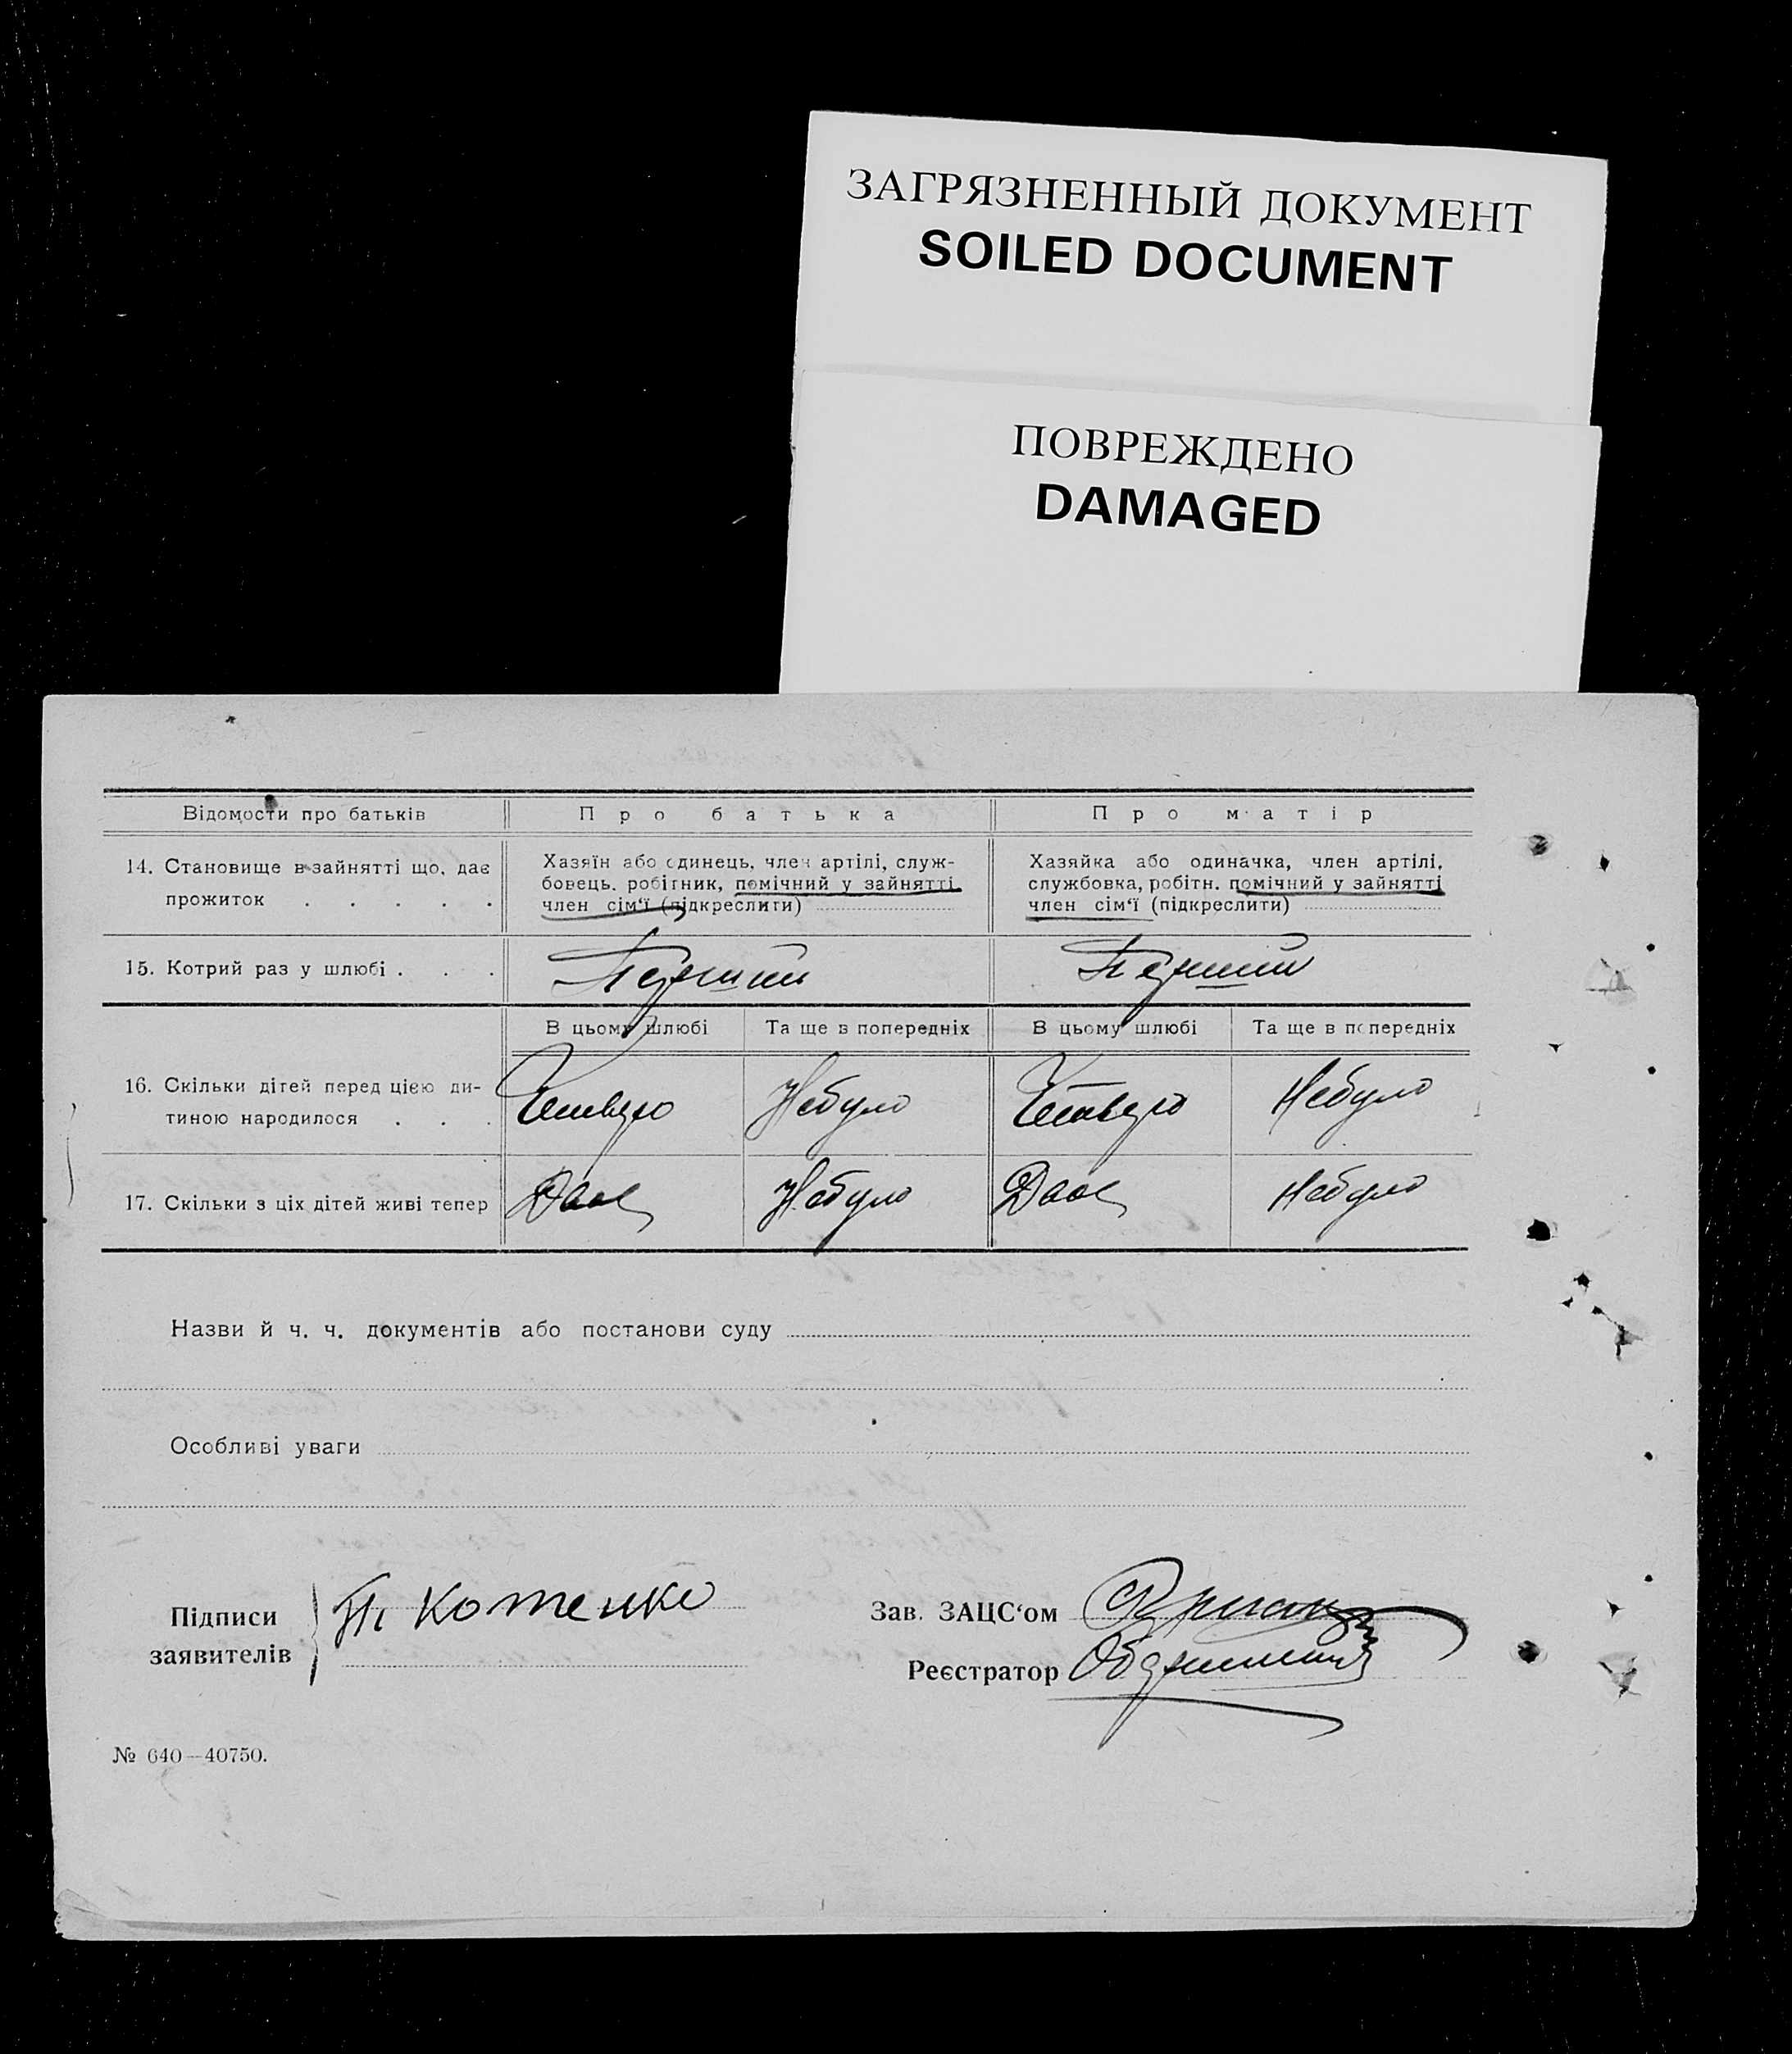 ЗАГРЯЗНЕННЫЙ ДОКУМЕНТ
SOILED DOCUMENT
ПОВРЕЖДЕНО
DAMAGED
Відомости про батьків
Про батька
Про матір
14. Становище в зайнятті що, дає
прожиток . . . . .
Хазяїн або одинець, член артілі, служ-
бовець, робітник, помічний у зайнятті
член сім'ї (підкреслити)
Хазяйка або одиначка, член артілі,
службовка, робітн. помічний у зайнятті
член сім'ї (підкреслити)
15. Котрий раз у шлюбі . . .
Перший
Перший
В цьому шлюбі
Та ще в попередніх
В цьому шлюбі
Та ще в попередніх
16. Скільки дітей перед цією ди-
тиною народилося . . .
Четверо
Небуло
Четверо
Небуло
17. Скільки з ціх дітей живі тепер
Двое
Небуло
Двое
Небуло
Назви й ч. ч. документів або постанови суду
Особливі уваги
Підписи
заявителів
Котенко
Зав. ЗАЦС'ом
Реєстратор
№ 640—40750.